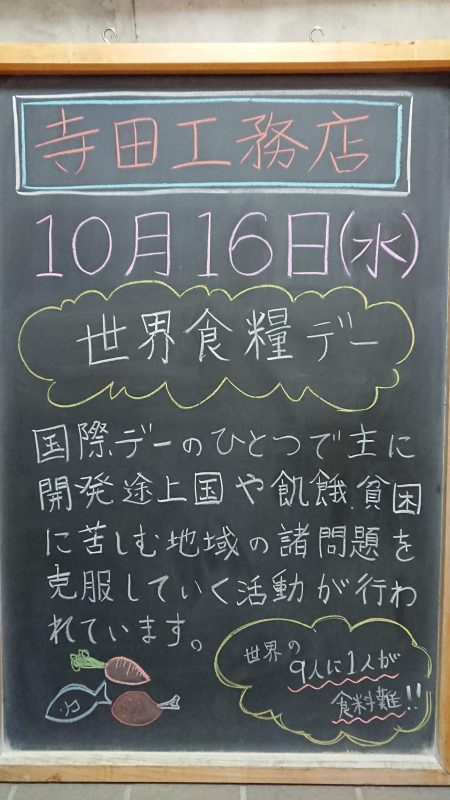 寺田工務店
10月16日(水)
世界食糧デー
国際デーのひとつで主に
開発途上国や飢餓、貧困
に苦しむ地域の諸問題を
克服していく活動が行わ
れています。
世界の
9人に1人が
食料難!!